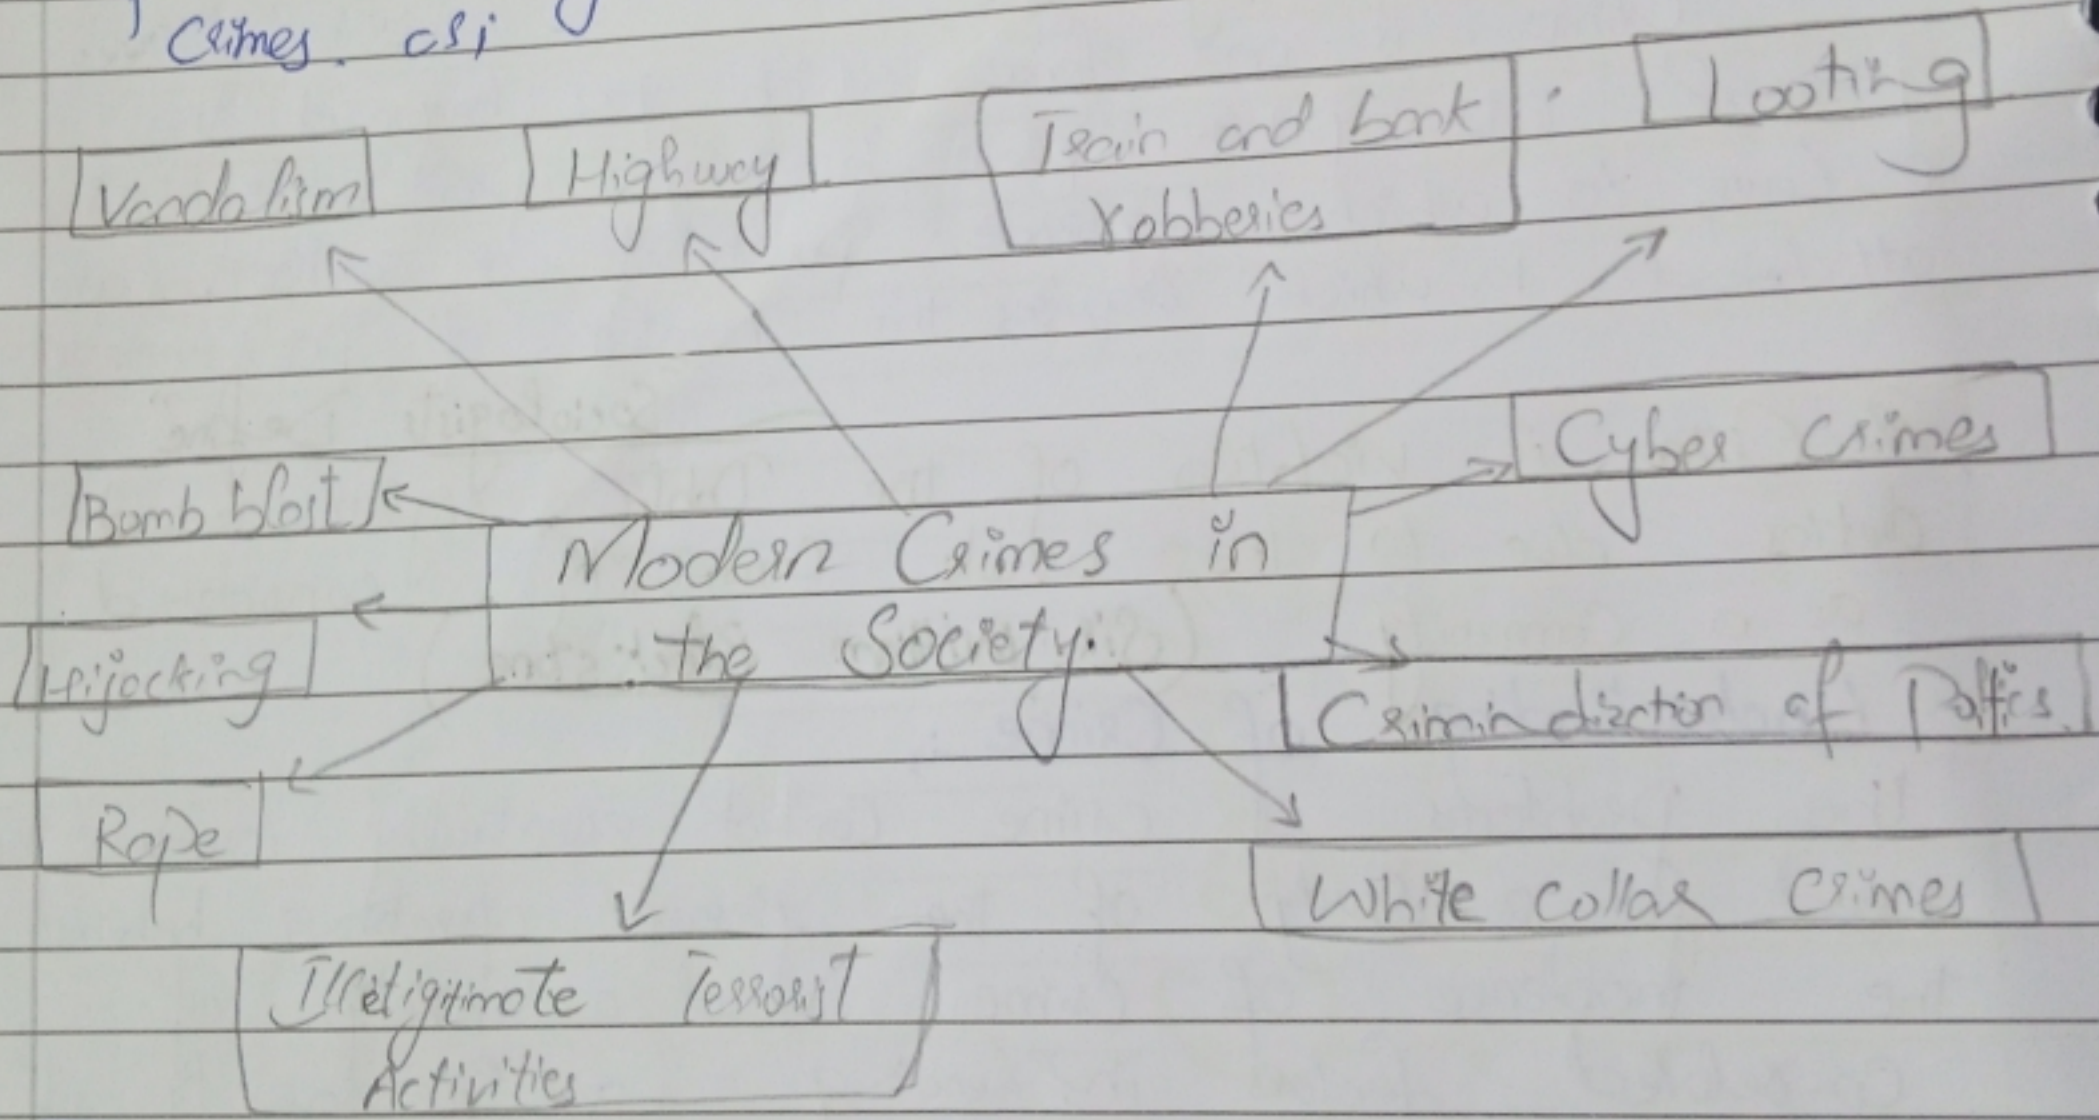 Crimes. csi
Vandalism
Highway
Train and bank
robberies
Looting
Cyber Crimes
Bomb blast
Modern Crimes in
the Society.
Hijacking
Criminalization of Politics
Rape
White collar Crimes
Illetigitimate Terrorist
Activities